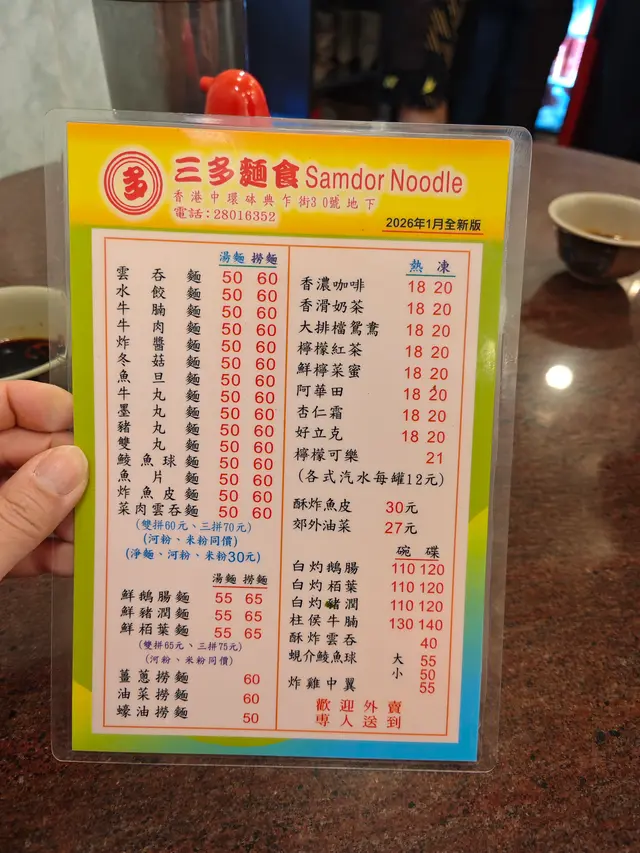 多
三多麵食 Samdor Noodle
香港中環砵典乍街30號地下
電話:28016352
2026年1月全新版
湯麵 撈麵
雲吞麵 50 60
水餃麵 50 60
牛腩麵 50 60
牛肉麵 50 60
炸醬麵 50 60
冬菇麵 50 60
魚旦麵 50 60
牛丸麵 50 60
墨丸麵 50 60
豬丸麵 50 60
雙丸麵 50 60
鯪魚球麵 50 60
魚片麵 50 60
炸魚皮麵 50 60
菜肉雲吞麵 50 60
(雙拼60元、三拼70元)
(河粉、米粉同價)
(淨麵、河粉、米粉30元)
湯麵 撈麵
鮮鵝腸麵 55 65
鮮豬潤麵 55 65
鮮栢葉麵 55 65
(雙拼65元、三拼75元)
(河粉、米粉同價)
薑蔥撈麵 60
油菜撈麵 60
蠔油撈麵 50
熱 凍
香濃咖啡 18 20
香滑奶茶 18 20
大排檔鴛鴦 18 20
檸檬紅茶 18 20
鮮檸菜蜜 18 20
阿華田 18 20
杏仁霜 18 20
好立克 18 20
檸檬可樂 21
(各式汽水每罐12元)
酥炸魚皮 30元
郊外油菜 27元
碗 碟
白灼鵝腸 110 120
白灼栢葉 110 120
白灼豬潤 110 120
柱侯牛腩 130 140
酥炸雲吞 40
蜆介鯪魚球 大 55
小 50
炸雞中翼 55
歡迎外賣
專人送到